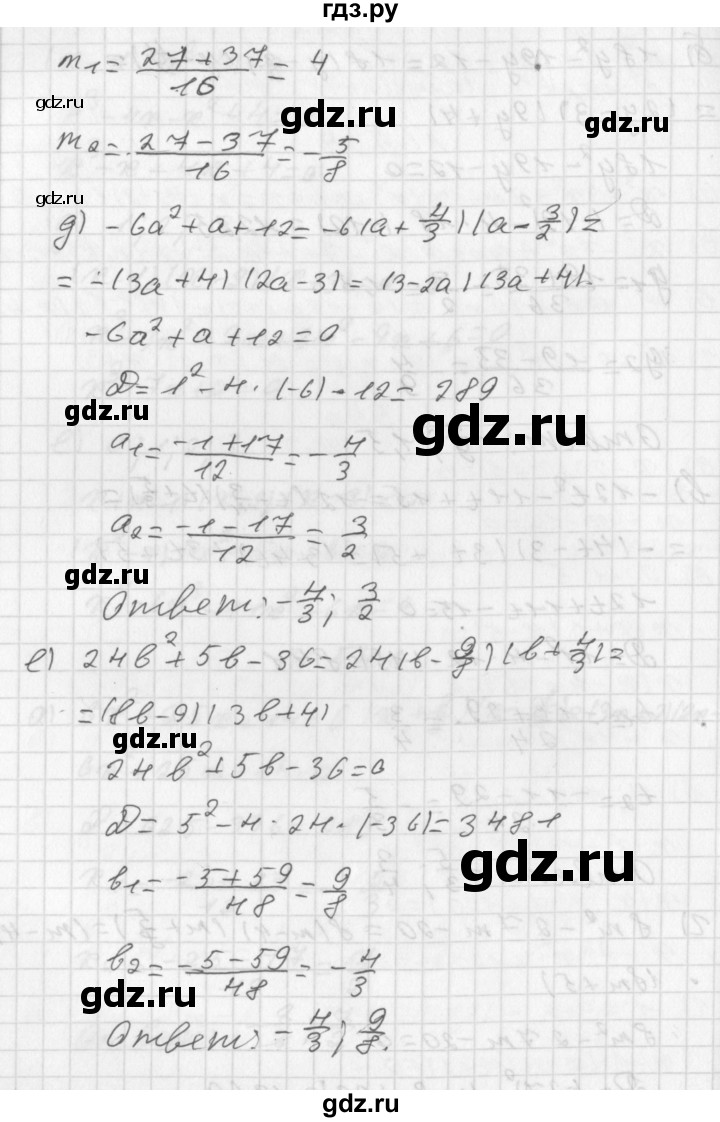 гдз.ру
m₁ = (27+37)/16 = 4
gdz.ru
gdz.ru
gdz.ru
m₂ = (27-37)/16 = -5/8
gdz.ru
д) -6a²+a+12 = -6(a+4/3)(a-3/2) =
= -(3a+4)(2a-3) = (3-2a)(3a+4).
-6a²+a+12=0
D = 1²-4·(-6)·12 = 289
gdz.ru
gdz.ru
a₁ = (-1+17)/12 = -4/3
a₂ = (-1-17)/12 = 3/2
gdz.ru
Ответ: -4/3; 3/2
е) 24в²+5в-36 = 24(в-9/8)(в+4/3) =
= (8в-9)(3в+4)
gdz.ru
24в²+5в-36=0
D = 5²-4·24·(-36) = 3481
gdz.ru
в₁ = (-5+59)/48 = 9/8
в₂ = (-5-59)/48 = -4/3
gdz.ru
Ответ: -4/3; 9/8.
gdz.ru